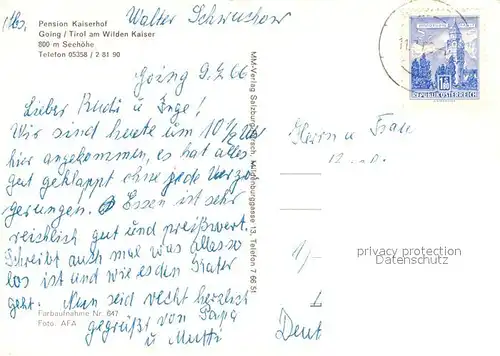 Abs. Walter Schwuchow
Pension Kaiserhof
Going / Tirol am Wilden Kaiser
800 m Seehöhe
Telefon 05358 / 2 81 90
Going 9.7.66
Lieber Rudi u Inge!
Wir sind heute um 10 1/2 Uhr
hier angekommen, es hat alles
gut geklappt ohne jede Verzö-
gerungen. Essen ist sehr
reichlich gut und preißwert.
Schreibt auch mal was alles so
los ist und wie es den Kater
geht. Nun seid recht herzlich
gegrüßt von Papa
u Mutti
Farbaufnahme Nr. 647
Foto. AFA
MM-Verlag Salzburg
Telefon 7 66 51
REPUBLIK ÖSTERREICH
Herrn u Frau
privacy protection
Datenschutz
Deut